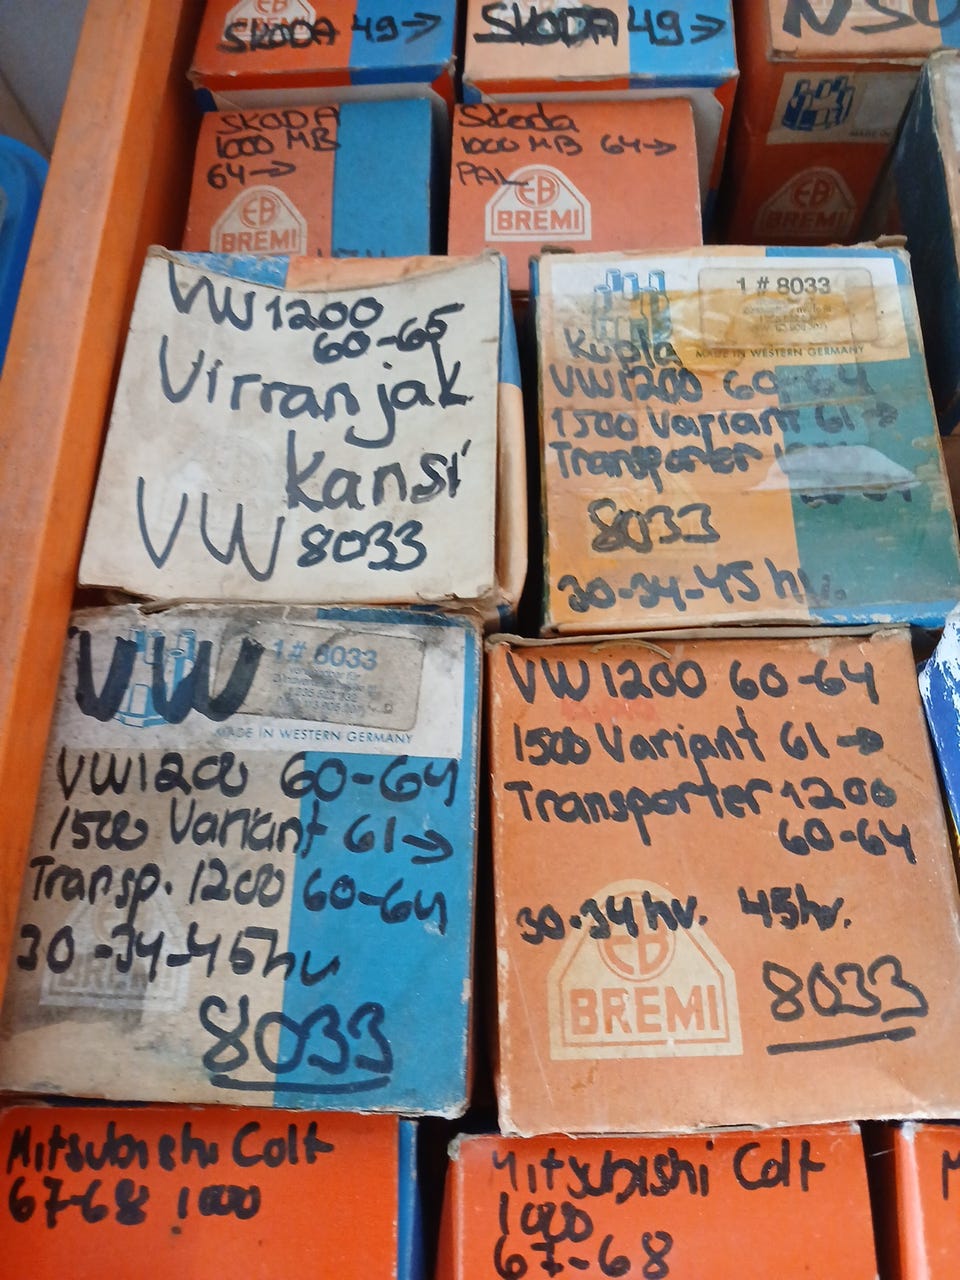 SKODA 49→
SKODA 49→
NSU
SKODA
1000 MB
64→
BREMI
Skoda
1000 MB 64→
PAL
BREMI
MADE IN
BREMI
VW 1200
60-65
Virranjak
kansi
VW 8033
1 # 8033
MADE IN WESTERN GERMANY
VW1200 60-64
1500 Variant 61→
Transporter
8033
30-34-45 hv.
VW
1 # 8033
MADE IN WESTERN GERMANY
VW1200 60-64
1500 Variant 61→
Transp. 1200 60-64
30-34-45hv
BREMI
8033
VW1200 60-64
1500 Variant 61→
Transporter 1200
60-64
30-34hv. 45hv.
BREMI
8033
Mitsubishi Colt
67-68 1000
Mitsubishi Colt
1000
67-68
M